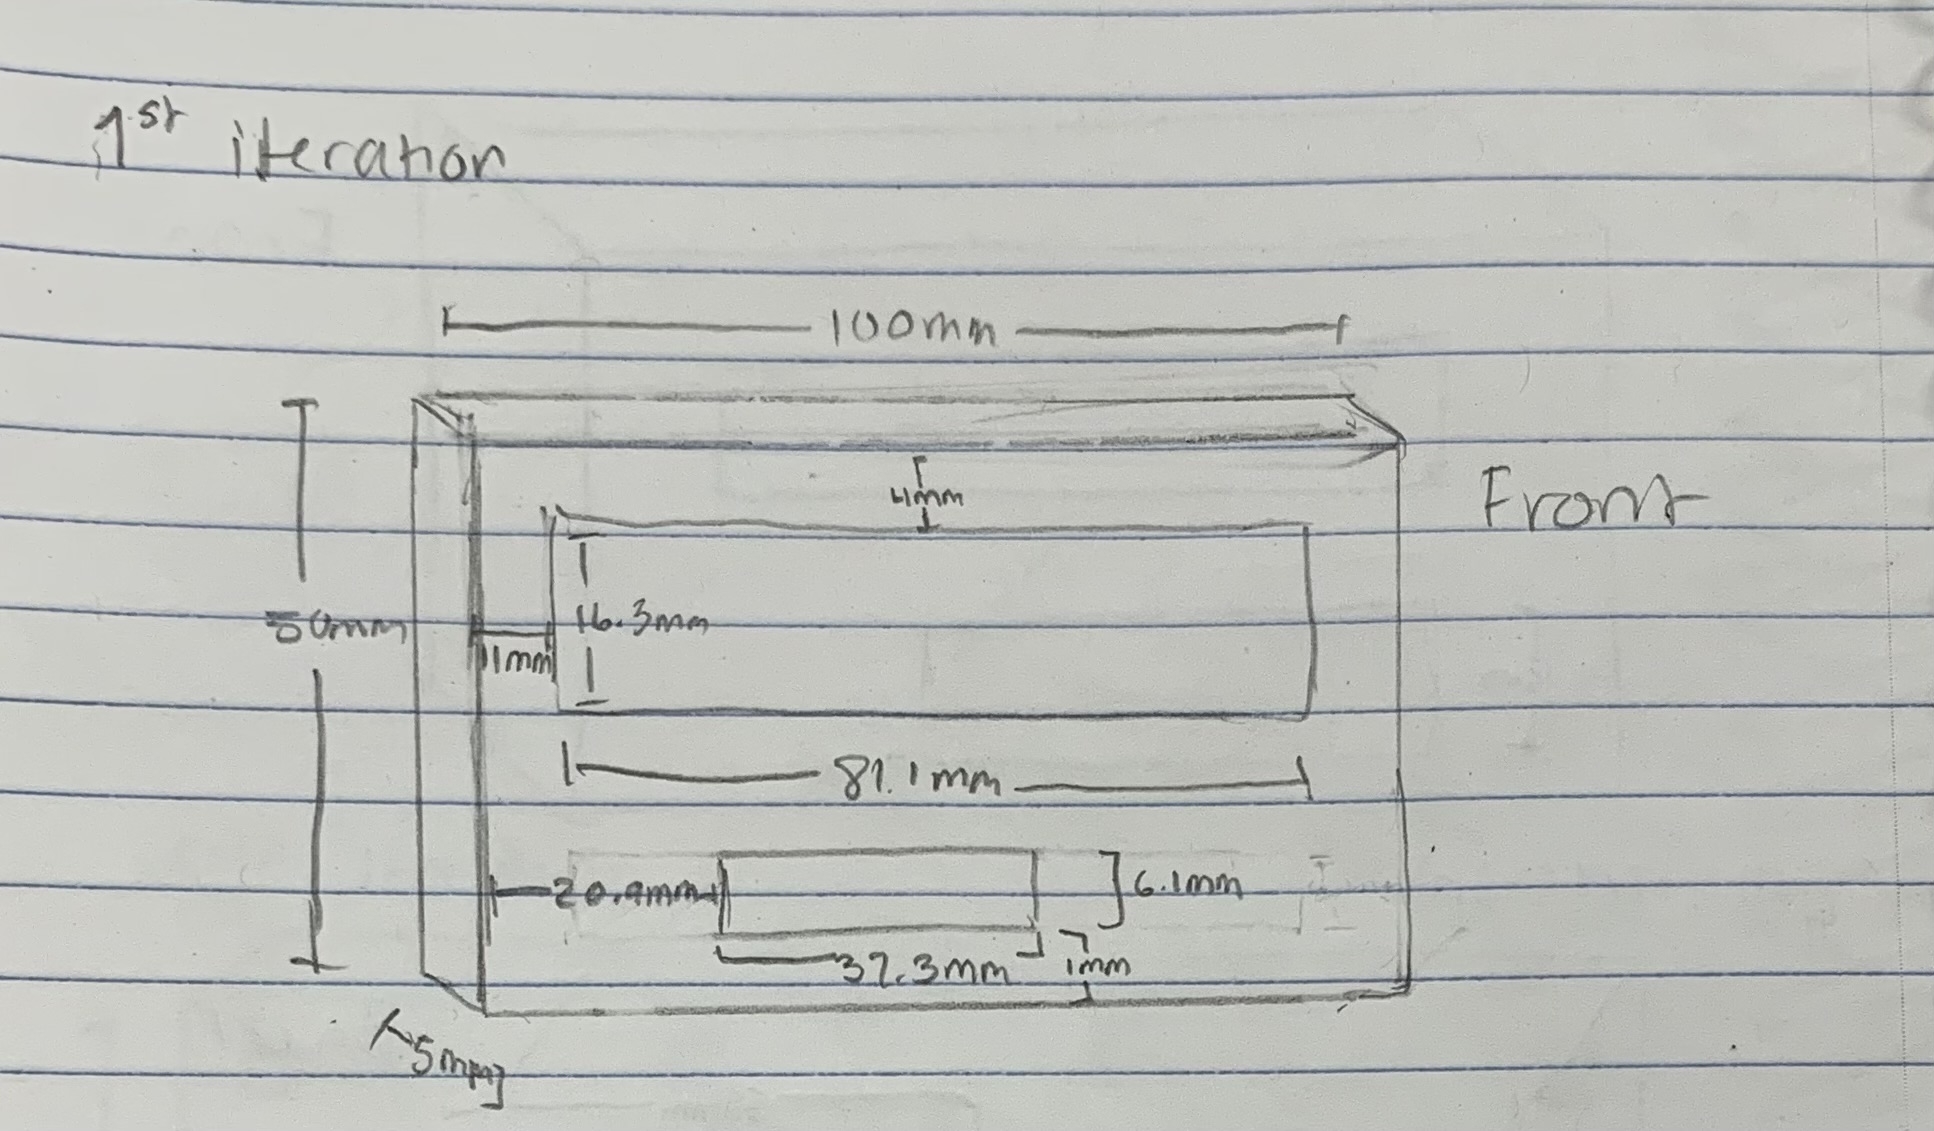 1st iteration
100mm
4mm
Front
50mm
16.3mm
11mm
81.1mm
20.9mm
6.1mm
37.3mm
7mm
5mm